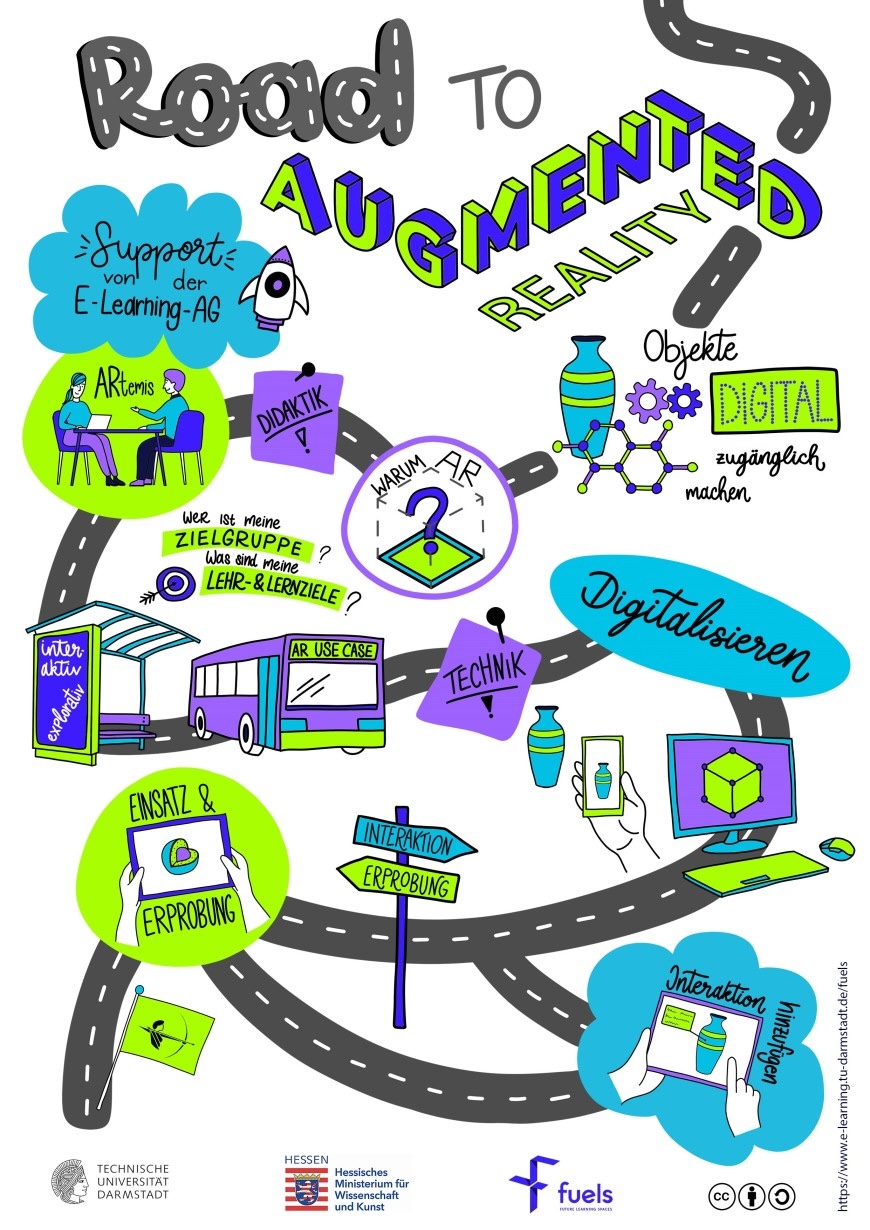 Road TO
AUGMENTED
REALITY
Support
von der
E-Learning-AG
ARtemis
DIDAKTIK
!
WARUM AR
?
Objekte
DIGITAL
zugänglich
machen
Wer ist meine
ZIELGRUPPE ?
Was sind meine
LEHR-&LERNZIELE ?
inter-
aktiv
explorativ
AR USE CASE
TECHNIK
!
Digitalisieren
EINSATZ &
ERPROBUNG
INTERAKTION
ERPROBUNG
Interaktion
hinzufügen
https://www.e-learning.tu-darmstadt.de/fuels
TECHNISCHE
UNIVERSITÄT
DARMSTADT
HESSEN
Hessisches
Ministerium für
Wissenschaft
und Kunst
fuels
FUTURE LEARNING SPACES
cc